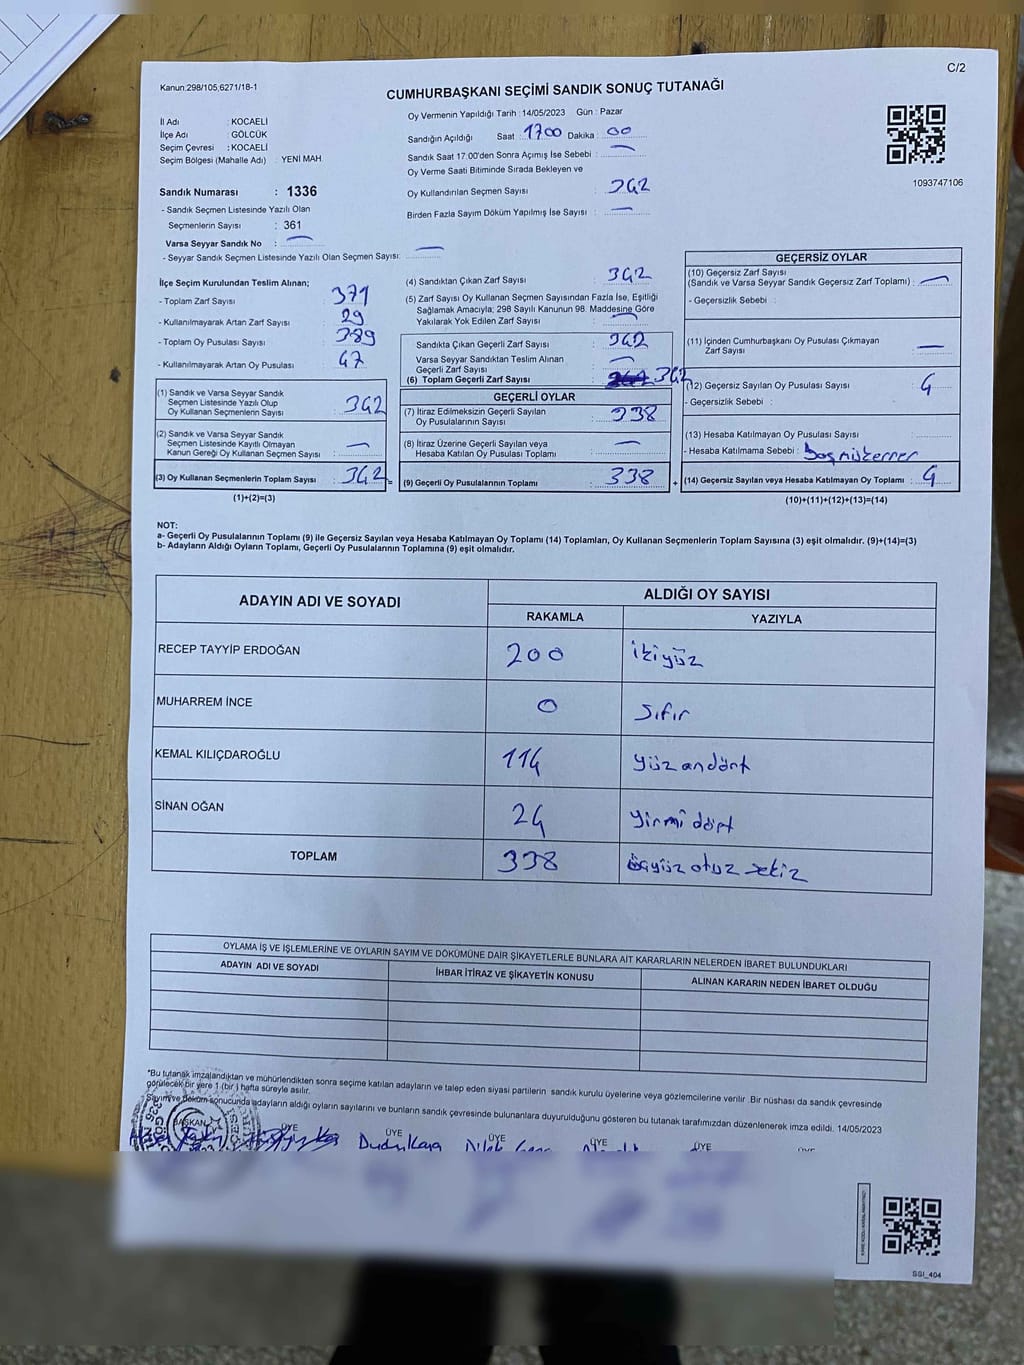 C/2
Kanun:298/105,6271/18-1
CUMHURBAŞKANI SEÇİMİ SANDIK SONUÇ TUTANAĞI
İl Adı : KOCAELİ
İlçe Adı : GÖLCÜK
Seçim Çevresi : KOCAELİ
Seçim Bölgesi (Mahalle Adı) : YENİ MAH.
Sandık Numarası : 1336
- Sandık Seçmen Listesinde Yazılı Olan
Seçmenlerin Sayısı : 361
Varsa Seyyar Sandık No :
- Seyyar Sandık Seçmen Listesinde Yazılı Olan Seçmen Sayısı:
Oy Vermenin Yapıldığı Tarih : 14/05/2023 Gün : Pazar
Sandığın Açıldığı Saat : 1700 Dakika : 00
Sandık Saat 17:00'den Sonra Açımış İse Sebebi :
Oy Verme Saati Bitiminde Sırada Bekleyen ve
Oy Kullandırılan Seçmen Sayısı : 342
Birden Fazla Sayım Döküm Yapılmış İse Sayısı :
1093747106
İlçe Seçim Kurulundan Teslim Alınan;
- Toplam Zarf Sayısı : 371
- Kullanılmayarak Artan Zarf Sayısı : 29
- Toplam Oy Pusulası Sayısı : 389
- Kullanılmayarak Artan Oy Pusulası : 47
(1) Sandık ve Varsa Seyyar Sandık
Seçmen Listesinde Yazılı Olup
Oy Kullanan Seçmenlerin Sayısı : 342
(2) Sandık ve Varsa Seyyar Sandık
Seçmen Listesinde Kayıtlı Olmayan
Kanun Gereği Oy Kullanan Seçmen Sayısı :
(3) Oy Kullanan Seçmenlerin Toplam Sayısı : 342 =
(1)+(2)=(3)
(4) Sandıktan Çıkan Zarf Sayısı : 342
(5) Zarf Sayısı Oy Kullanan Seçmen Sayısından Fazla İse, Eşitliği
Sağlamak Amacıyla; 298 Sayılı Kanunun 98. Maddesine Göre
Yakılarak Yok Edilen Zarf Sayısı :
Sandıkta Çıkan Geçerli Zarf Sayısı : 342
Varsa Seyyar Sandıktan Teslim Alınan
Geçerli Zarf Sayısı :
(6) Toplam Geçerli Zarf Sayısı : 342
GEÇERLİ OYLAR
(7) İtiraz Edilmeksizin Geçerli Sayılan
Oy Pusulalarının Sayısı : 338
(8) İtiraz Üzerine Geçerli Sayılan veya
Hesaba Katılan Oy Pusulası Toplamı :
(9) Geçerli Oy Pusulalarının Toplamı : 338 +
GEÇERSİZ OYLAR
(10) Geçersiz Zarf Sayısı
(Sandık ve Varsa Seyyar Sandık Geçersiz Zarf Toplamı) :
- Geçersizlik Sebebi :
(11) İçinden Cumhurbaşkanı Oy Pusulası Çıkmayan
Zarf Sayısı :
(12) Geçersiz Sayılan Oy Pusulası Sayısı : 4
- Geçersizlik Sebebi :
(13) Hesaba Katılmayan Oy Pusulası Sayısı :
- Hesaba Katılmama Sebebi :
(14) Geçersiz Sayılan veya Hesaba Katılmayan Oy Toplamı : 4
(10)+(11)+(12)+(13)=(14)
NOT:
a- Geçerli Oy Pusulalarının Toplamı (9) ile Geçersiz Sayılan veya Hesaba Katılmayan Oy Toplamı (14) Toplamları, Oy Kullanan Seçmenlerin Toplam Sayısına (3) eşit olmalıdır. (9)+(14)=(3)
b- Adayların Aldığı Oyların Toplamı, Geçerli Oy Pusulalarının Toplamına (9) eşit olmalıdır.
ADAYIN ADI VE SOYADI
ALDIĞI OY SAYISI
RAKAMLA YAZIYLA
RECEP TAYYİP ERDOĞAN 200 ikiyüz
MUHARREM İNCE 0 sıfır
KEMAL KILIÇDAROĞLU 114 yüz ondört
SİNAN OĞAN 24 yirmi dört
TOPLAM 338 üçyüz otuz sekiz
OYLAMA İŞ VE İŞLEMLERİNE VE OYLARIN SAYIM VE DÖKÜMÜNE DAİR ŞİKAYETLERLE BUNLARA AİT KARARLARIN NELERDEN İBARET BULUNDUKLARI
ADAYIN ADI VE SOYADI İHBAR İTİRAZ VE ŞİKAYETİN KONUSU ALINAN KARARIN NEDEN İBARET OLDUĞU
*Bu tutanak imzalandıktan ve mühürlendikten sonra seçime katılan adayların ve talep eden siyasi partilerin sandık kurulu üyelerine veya gözlemcilerine verilir. Bir nüshası da sandık çevresinde
görülecek bir yere 1 (bir) hafta süreyle asılır.
Sayım ve döküm sonucunda adayların aldığı oyların sayılarını ve bunların sandık çevresinde bulunanlara duyurulduğunu gösteren bu tutanak tarafımızdan düzenlenerek imza edildi. 14/05/2023
BAŞKAN ÜYE ÜYE ÜYE ÜYE ÜYE ÜYE
Dudu Kaya Dilek
SSI_404